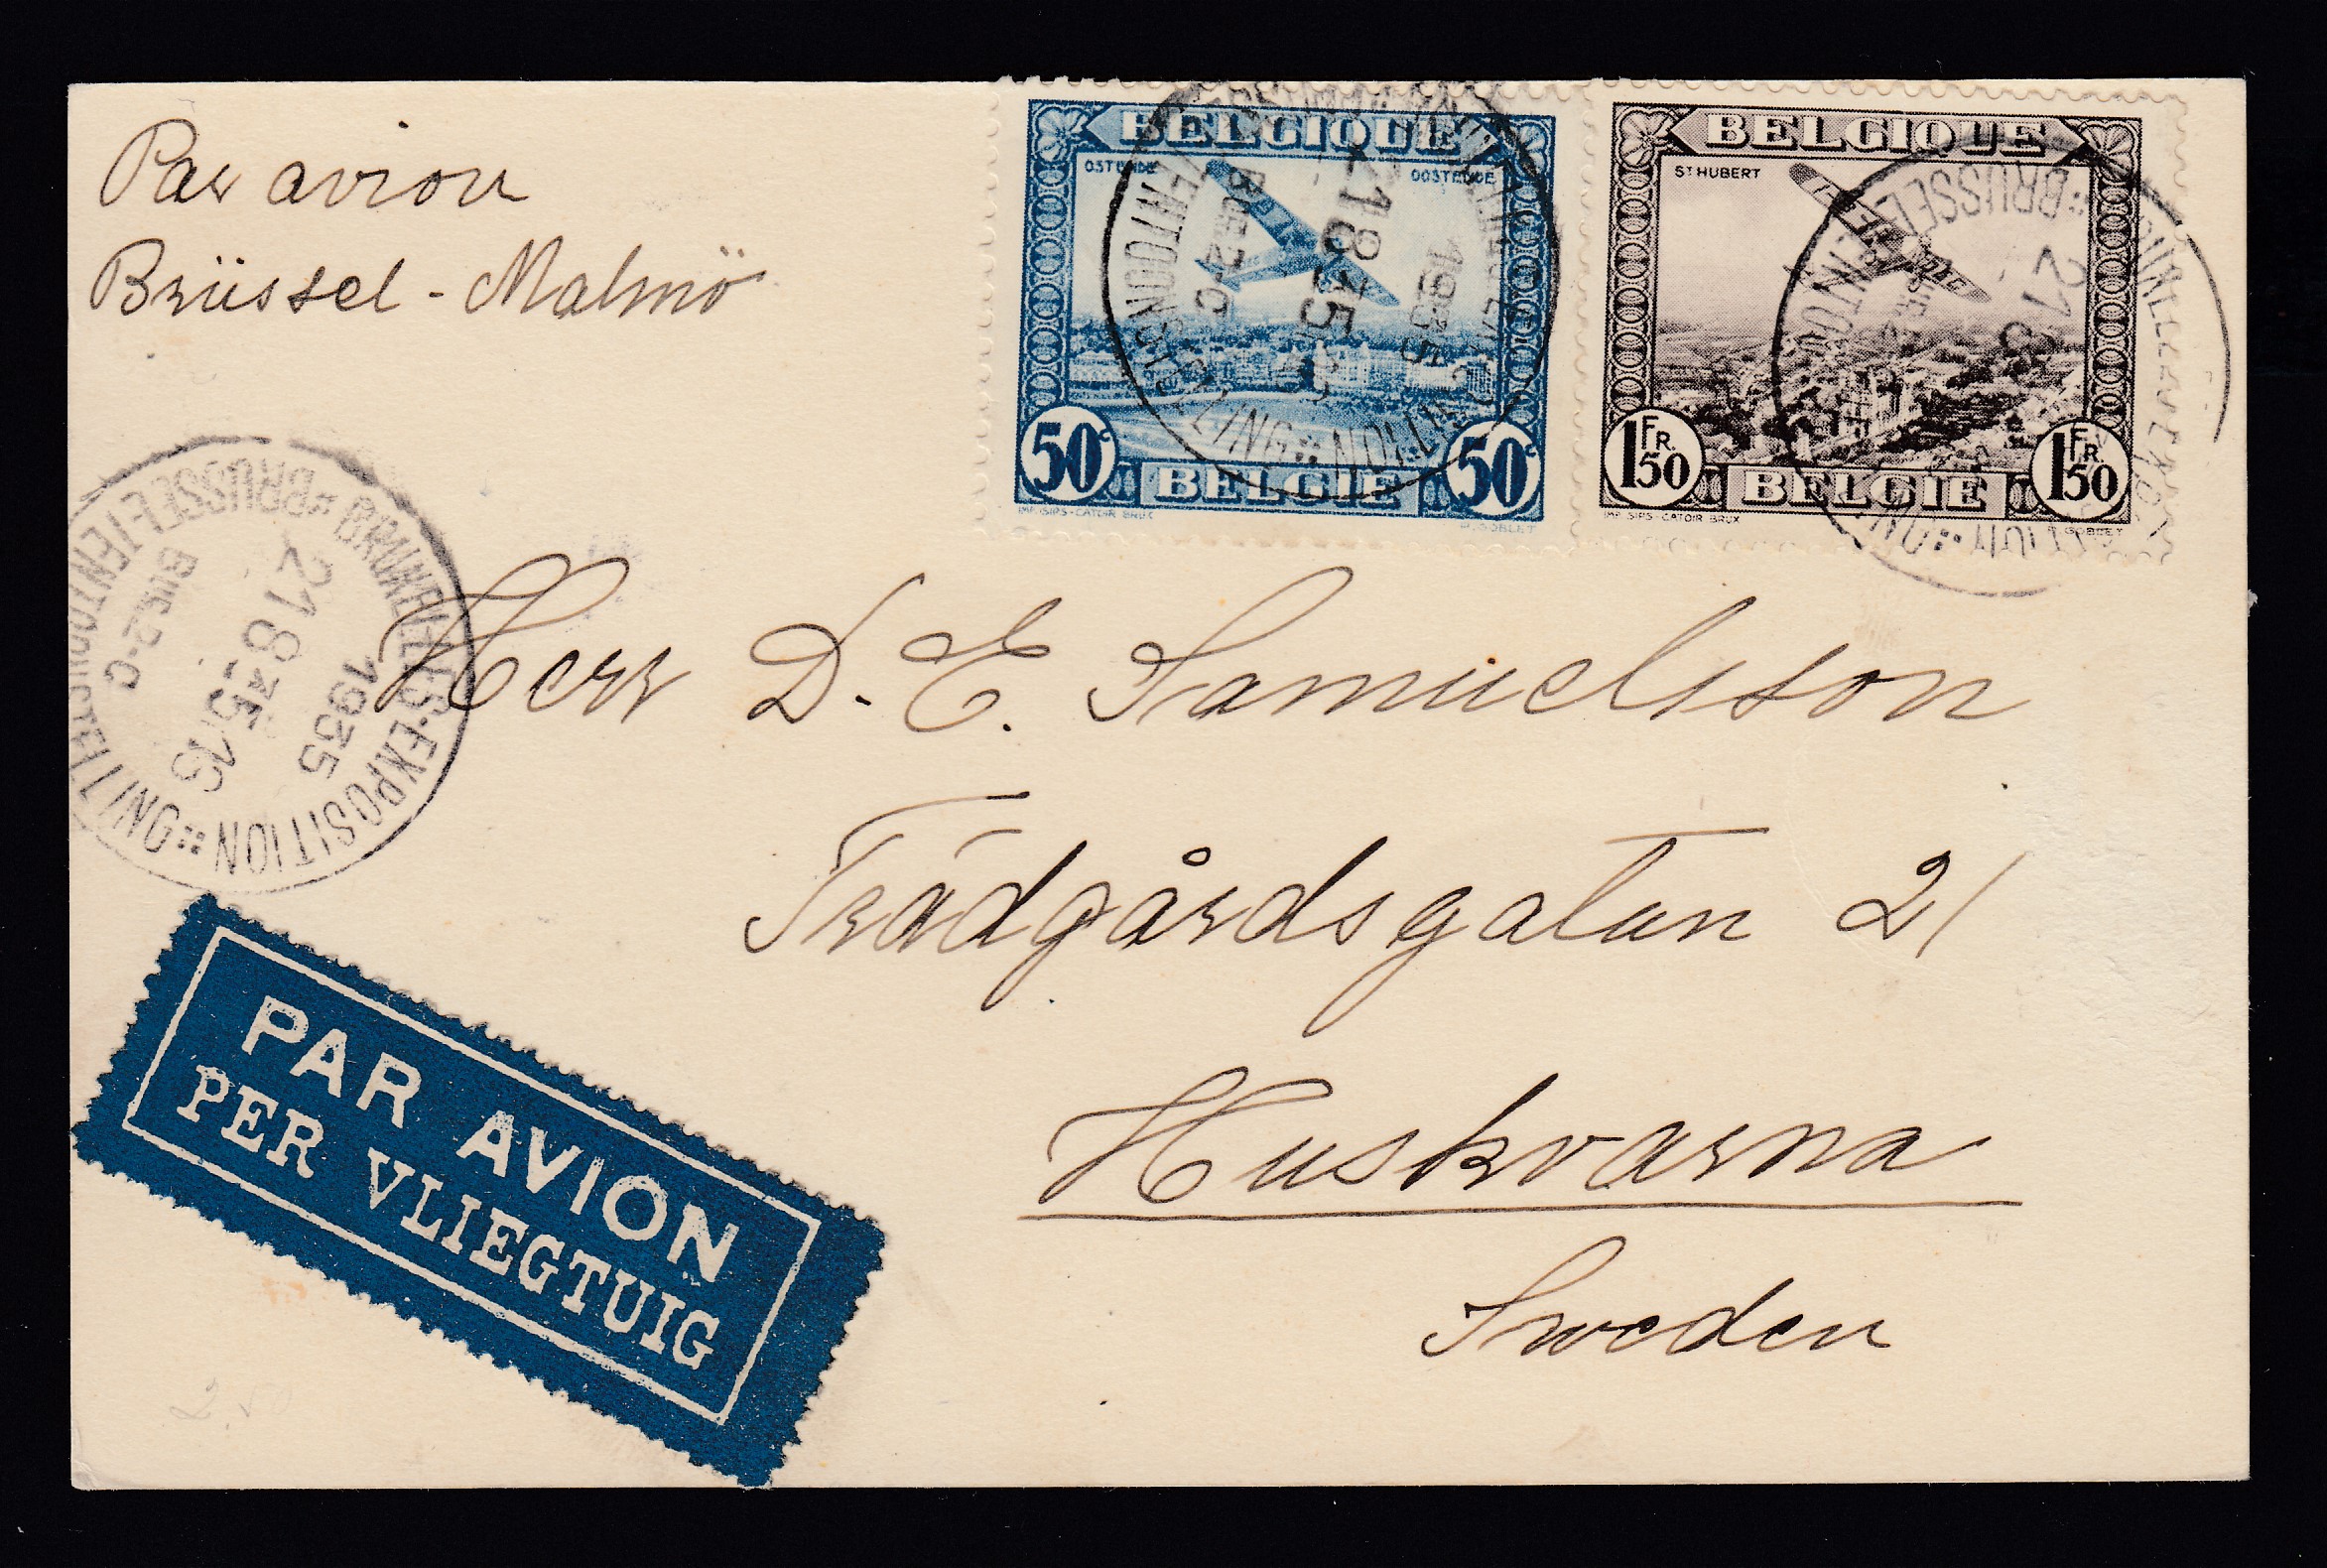 Par avion
Brüssel - Malmö
BELGIQUE
OSTENDE OOSTENDE
50c 50c
BELGIE
IMP. SIPS - CATOIR BRUX
BELGIQUE
ST HUBERT
1FR.50 1FR.50
BELGIE
IMP. SIPS - CATOIR BRUX
BRUXELLES-EXPOSITION
1935
21 8 35 16
BRUSSEL-TENTOONSTELLING
Herr D. E. Samuelsson
Trädgårdsgatan 21
Huskvarna
Sweden
PAR AVION
PER VLIEGTUIG